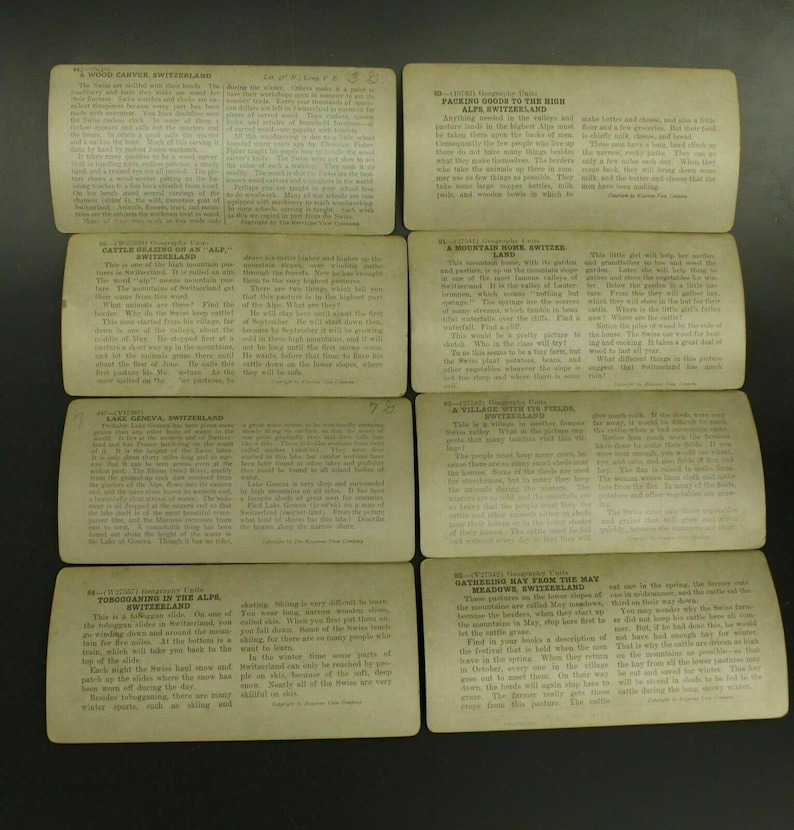 A WOOD CARVER, SWITZERLAND
Lat. 47° N.; Long. 8° E.
The Swiss are skillful with their hands. The
machinery and tools they make are noted for
their fineness. Swiss watches and clocks are ex-
cellent timepieces because every part has been
made with exactness. You have doubtless seen
the Swiss cuckoo clock. In some of these a
cuckoo appears and calls out the quarters and
the hours. In others a quail calls the quarter
and a cuckoo the hour. Much of this carving is
done by hand by patient Swiss workmen.
It takes many qualities to be a wood carver.
Skill in handling tools, endless patience, a steady
hand, and a trained eye are all needed. The pic-
ture shows a wood-worker putting on the fin-
ishing touches to a fine buck chiseled from wood.
On his bench stand several carvings of the
chamois, the wild, mountain goat of
Switzerland. Animals, flowers, trees, and moun-
tains are the subjects the workmen treat in wood.
Many of these work at this trade only
during the winter. Others make it a point to
have their workshops open in summer to get the
tourists' trade. Every year thousands of Ameri-
can dollars are left in Switzerland in payment for
pieces of carved wood. Toys, clocks, spoons,
forks, and articles of household furniture—all
of carved wood—are popular with tourists.
All this woodcarving is due to a little school
founded many years ago by Chevalier Fisher.
Fisher taught his pupils how to handle the wood
carver's knife. The Swiss were not slow to see
the value of such a training. They took it up
readily. The result is that the Swiss are the best-
known wood carvers and toymakers in the world.
Perhaps you are taught in your school how
to do woodwork. Many of our schools are now
equipped with machinery to teach woodworking.
In some schools, carving is taught. Such work
as this we copied in part from the Swiss.
Copyright by The Keystone View Company.
89—(10793) Geography Units
PACKING GOODS TO THE HIGH
ALPS, SWITZERLAND
Anything needed in the valleys and
pasture lands in the highest Alps must
be taken there upon the backs of men.
Consequently the few people who live up
there do not have many things besides
what they make themselves. The herders
who take the animals up there in sum-
mer use as few things as possible. They
take some large copper kettles, milk
pails, and wooden bowls in which to
make butter and cheese, and also a little
flour and a few groceries. But their food
is chiefly milk, cheese, and bread.
These men have a long, hard climb up
the narrow, rocky paths. They can go
only a few miles each day. When they
come back, they will bring down some
milk, and the butter and cheese that the
men have been making.
Copyright by Keystone View Company
Geography Units
CATTLE GRAZING ON AN "ALP,"
SWITZERLAND
This is one of the high mountain pas-
tures in Switzerland. It is called an alp.
The word "alp" means mountain pas-
ture. The mountains of Switzerland get
their name from this word.
What animals are these? Find the
herder. Why do the Swiss keep cattle?
This man started from his village, far
down in one of the valleys, about the
middle of May. He stopped first at a
pasture a short way up in the mountains,
and let the animals graze there until
about the first of June. He calls this
first pasture his Ma ture. As the
snow melted on the er pastures, he
drove his cattle higher and higher up the
mountain slopes, over winding paths
through the forests. Now he has brought
them to the very highest pastures.
There are two things which tell you
that this pasture is in the highest part
of the Alps. What are they?
He will stay here until about the first
of September. He will start down then,
because by September it will be growing
cold in these high mountains, and it will
not be long until the first snows come.
He wants, before that time, to have his
cattle down on the lower slopes, where
they will be safe.
Copyright by Keystone View Company
91—(27541) Geography Units
A MOUNTAIN HOME, SWITZER-
LAND
This mountain home, with its garden
and pasture, is up on the mountain slope
in one of the most famous valleys of
Switzerland. It is the valley of Lauter-
brunnen, which means "nothing but
springs." The springs are the sources
of many streams, which tumble in beau-
tiful waterfalls over the cliffs. Find a
waterfall. Find a cliff.
This would be a pretty picture to
sketch. Who in the class will try?
To us this seems to be a tiny farm, but
the Swiss plant potatoes, beans, and
other vegetables wherever the slope is
not too steep and where there is some
soil.
This little girl will help her mother
and grandfather to hoe and weed the
garden. Later she will help them to
gather and store the vegetables for win-
ter. Below the garden is a little pas-
ture. From this they will gather hay,
which they will store in the hut for their
cattle. Where is the little girl's father
now? Where are the cattle?
Notice the piles of wood by the side of
the house. The Swiss use wood for heat-
ing and cooking. It takes a great deal of
wood to last all year.
What different things in this picture
suggest that Switzerland has much
rain?
Copyright by Keystone View Company
LAKE GENEVA, SWITZERLAND
Probably Lake Geneva has been given more
praise than any other body of water in the
world. It lies at the western end of Switzer-
land and has France bordering on the south
of it. It is the largest of the Swiss lakes.
It is only about thirty miles long and so nar-
row that it can be seen across even at the
widest part. The Rhone (ron) River, muddy
from the ground-up rock dust received from
the glaciers of the Alps, flows into its eastern
end, and the same river leaves its western end,
a beautifully clear stream of water. The sedi-
ment is all dropped at the eastern end so that
the lake itself is of the most beautiful trans-
parent blue, and the blueness increases from
east to west. A remarkable thing has been
found out about the height of the water in
the Lake of Geneva. Though it has no tides,
a great wave seems to be continually creeping
slowly along its surface, so that the water at
one point gradually rises and then falls just
like a tide. These tidelike motions have been
called seiches. They were first
studied in this lake, but similar motions have
been later found in other lakes and probably
they could be found in all inland bodies of
water.
Lake Geneva is very deep and surrounded
by high mountains on all sides. It has been
a favorite abode of great men for centuries.
Find Lake Geneva (je-ne'va) on a map of
Switzerland (swit'zer-land). From the picture
what kind of shores has this lake? Describe
the houses along the narrow shore.
Copyright by The Keystone View Company.
93—(27543) Geography Units
A VILLAGE WITH ITS FIELDS,
SWITZERLAND
This is a village in another famous
Swiss valley. What in the picture sug-
gests that many tourists visit this vil-
lage?
The people must keep many cows, be-
cause there are so many small sheds near
the houses. Some of the sheds are used
for storehouses, but in many they keep
the animals during the winters. The
winters are so cold, and the snowfalls are
so heavy that the people must keep the
cattle and other animals either in sheds
near their homes or in the lower stories
of their houses. The cattle must be fed
and watered every day so that they will
give much milk. If the sheds were very
far away, it would be difficult to reach
the cattle when a bad snowstorm came.
Notice how much work the farmers
have done to make their fields. If you
were near enough, you would see wheat,
rye, and oats, and also fields of flax and
hay. The flax is raised to make linen.
The women weave linen cloth and make
lace from the flax. In many of the fields,
potatoes and other vegetables are grow-
ing.
The Swiss raise only those vegetables
and grains that will grow and ripen
quickly, because the summers are short.
84—(W27537) Geography Units
TOBOGGANING IN THE ALPS,
SWITZERLAND
This is a toboggan slide. On one of
the toboggan slides in Switzerland, you
go winding down and around the moun-
tain for five miles. At the bottom is a
train, which will take you back to the
top of the slide.
Each night the Swiss haul snow and
patch up the slides where the snow has
been worn off during the day.
Besides tobogganing, there are many
winter sports, such as skiing and
skating. Skiing is very difficult to learn.
You wear long, narrow wooden slides,
called skis. When you first put them on,
you fall down. Some of the Swiss teach
skiing, for there are so many people who
want to learn.
In the winter time some parts of
Switzerland can only be reached by peo-
ple on skis, because of the soft, deep
snow. Nearly all of the Swiss are very
skillful on skis.
Copyright by Keystone View Company
92—(V27542) Geography Units
GATHERING HAY FROM THE MAY
MEADOWS, SWITZERLAND
These pastures on the lower slopes of
the mountains are called May meadows,
because the herders, when they start up
the mountains in May, stop here first to
let the cattle graze.
Find in your books a description of
the festival that is held when the men
leave in the spring. When they return
in October, every one in the village
goes out to meet them. On their way
down, the herds will again stop here to
graze. The farmer really gets three
crops from this pasture. The cattle
eat one in the spring, the farmer cuts
one in midsummer, and the cattle eat the
third on their way down.
You may wonder why the Swiss farm-
er did not keep his cattle here all sum-
mer. But, if he had done this, he would
not have had enough hay for winter.
That is why the cattle are driven as high
on the mountains as possible—so that
the hay from all the lower pastures may
be cut and saved for winter. This hay
will be stored in sheds to be fed to the
cattle during the long, snowy winter.
Copyright by Keystone View Company